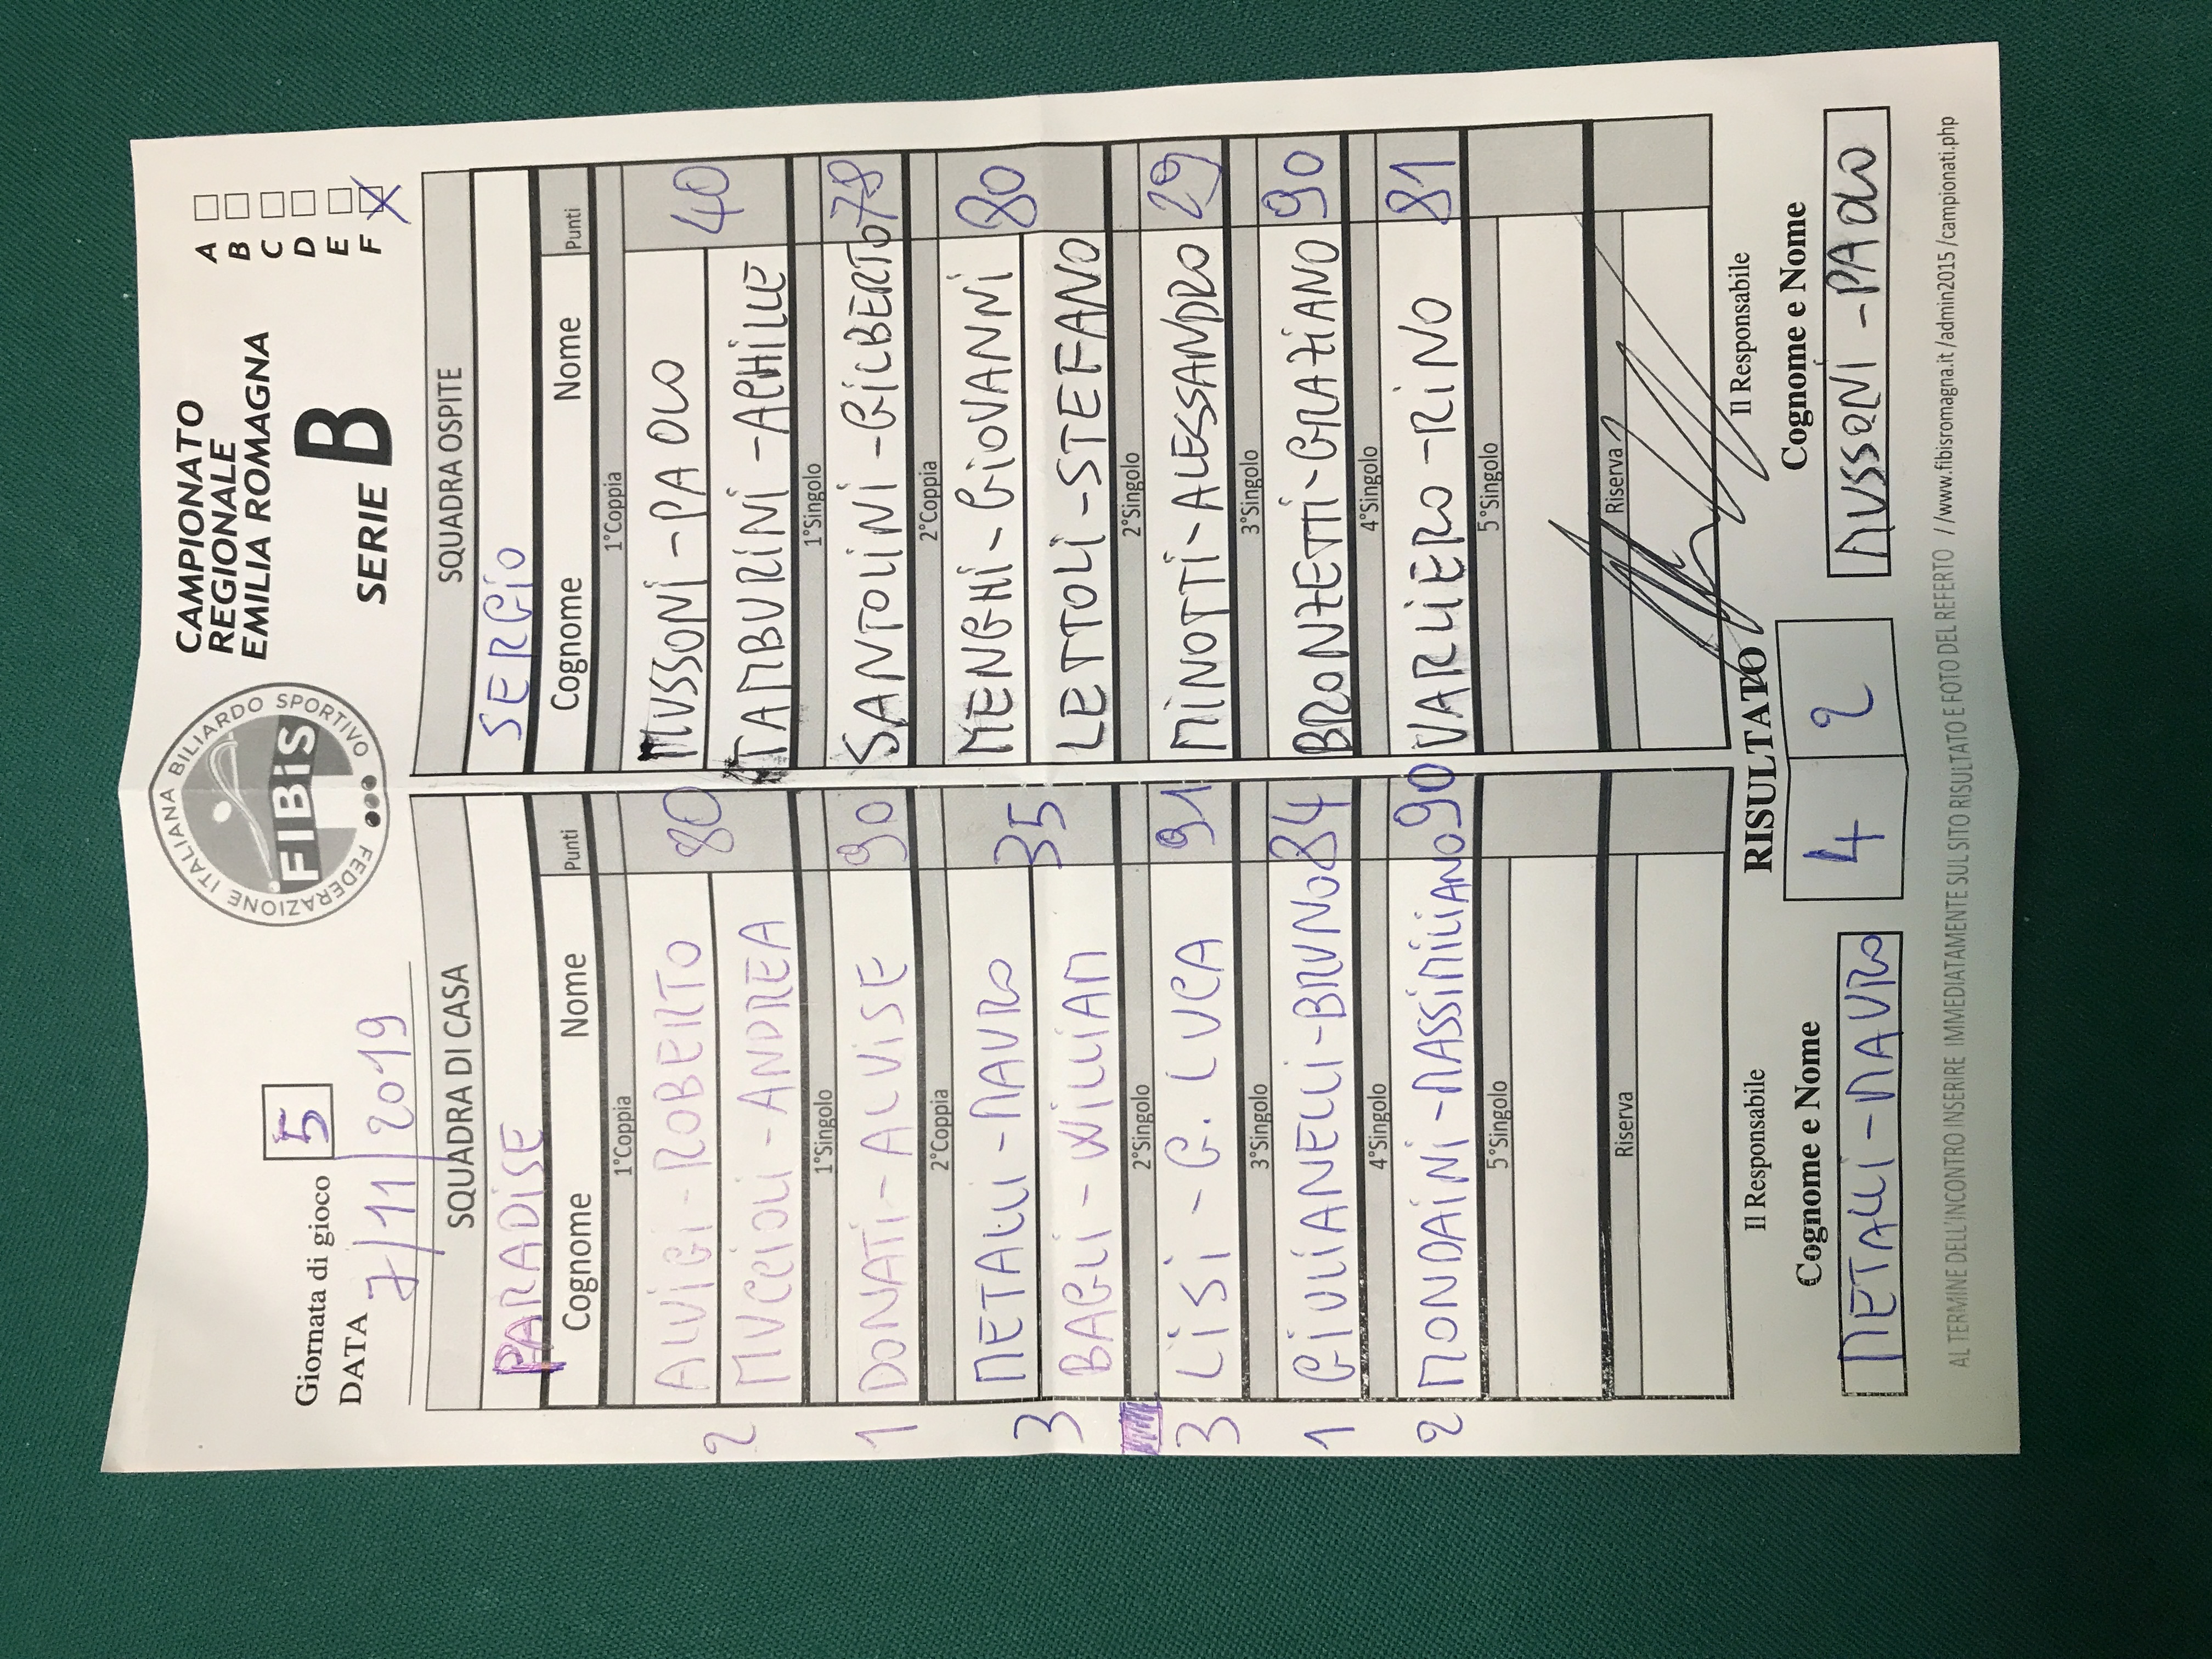 Giornata di gioco 5
DATA 7/11/2019
FEDERAZIONE ITALIANA BILIARDO SPORTIVO
FIBiS
CAMPIONATO
REGIONALE
EMILIA ROMAGNA
SERIE B
A
B
C
D
E
F X
SQUADRA DI CASA
PARADISE
Cognome Nome Punti
1°Coppia
ALVIGI - ROBERTO 80
2 MUCCIOLI - ANDREA
1°Singolo
1 DONATI - ALVISE 90
2°Coppia
METALLI - MAURO 35
3 BAGLI - WILLIAM
2°Singolo
3 LISI - G. LUCA 91
3°Singolo
1 GIULIANELLI - BRUNO 84
4°Singolo
2 MONDAINI - MASSIMILIANO 90
5°Singolo
Riserva
SQUADRA OSPITE
SERGIO
Cognome Nome Punti
1°Coppia
MUSSONI - PAOLO 40
TAMBURINI - ACHILLE
1°Singolo
SANTOLINI - GILBERTO 78
2°Coppia
MENGHI - GIOVANNI 80
LETTOLI - STEFANO
2°Singolo
MINOTTI - ALESSANDRO 29
3°Singolo
BRONZETTI - GRAZIANO 90
4°Singolo
VARLIERO - RINO 81
5°Singolo
Riserva
Il Responsabile RISULTATO Il Responsabile
Cognome e Nome 4 2 Cognome e Nome
METALLI - MAURO MUSSONI - PAOLO
AL TERMINE DELL'INCONTRO INSERIRE IMMEDIATAMENTE SUL SITO RISULTATO E FOTO DEL REFERTO //www.fibisromagna.it /admin2015 /campionati.php